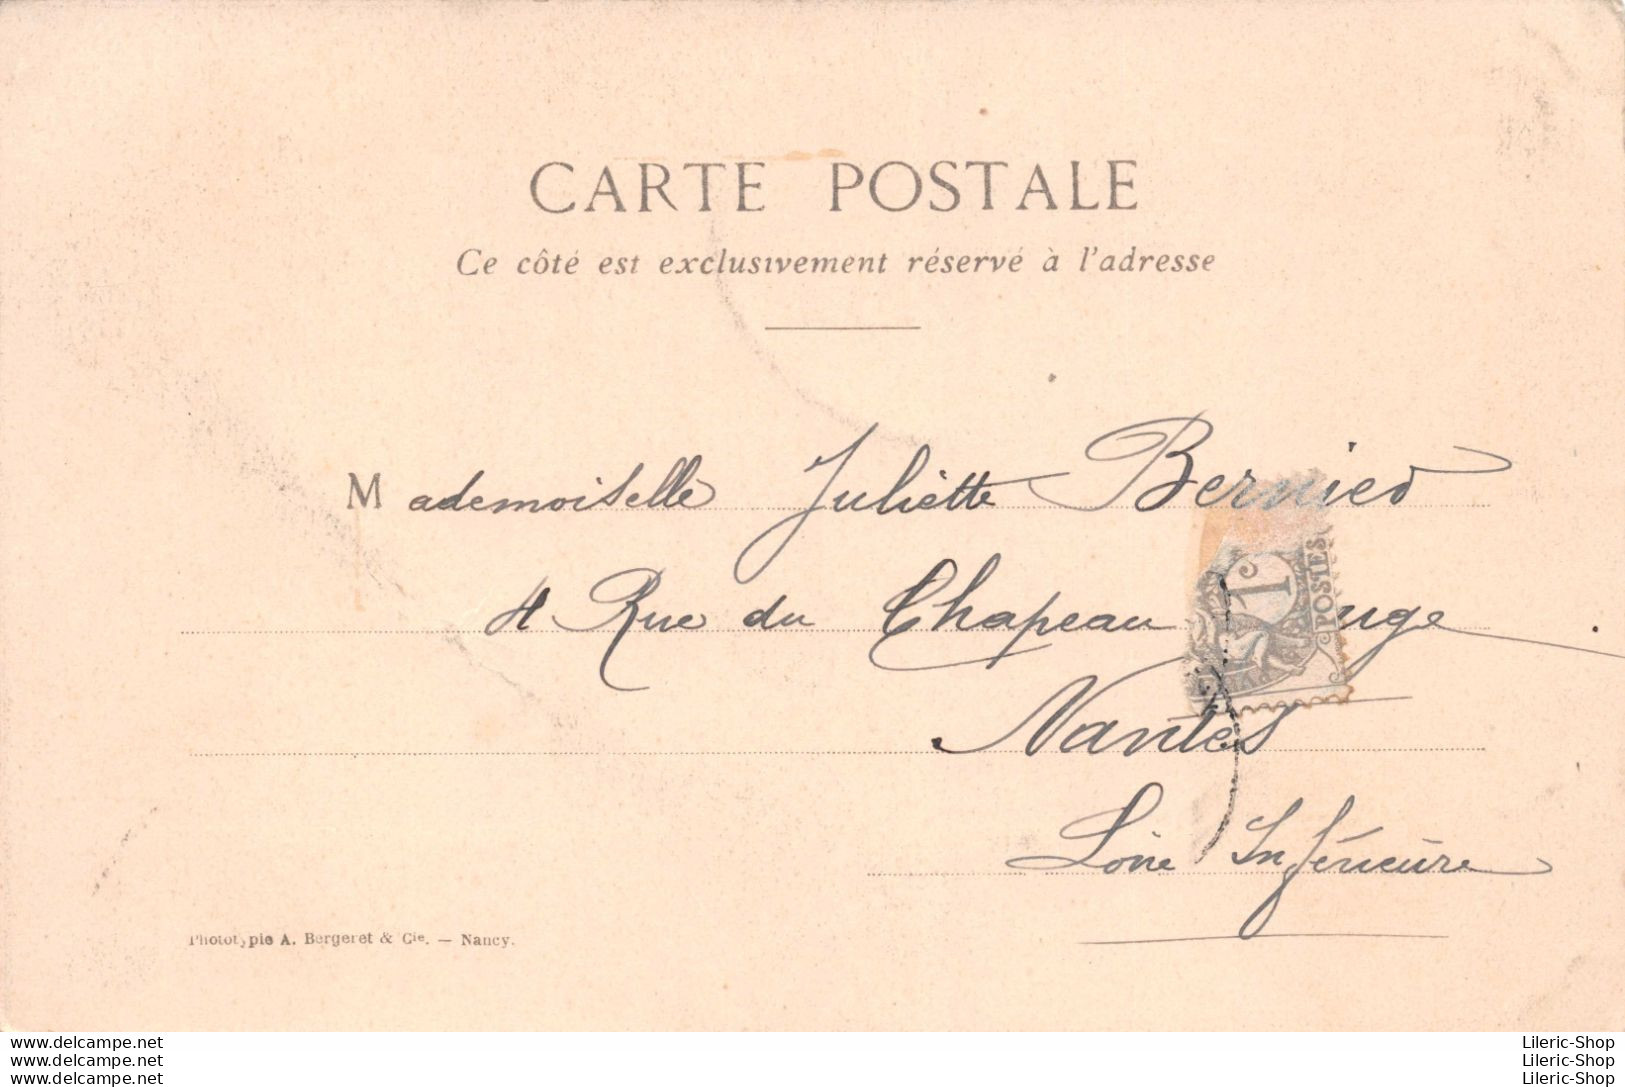 CARTE POSTALE
Ce côté est exclusivement réservé à l'adresse
Mademoiselle Juliette Bernier
4 Rue du Chapeau uge
Nantes
Loire Inférieure
1c
POSTES
Phototypie A. Bergeret & Cie. — Nancy.
www.delcampe.net
www.delcampe.net
www.delcampe.net
Lileric-Shop
Lileric-Shop
Lileric-Shop